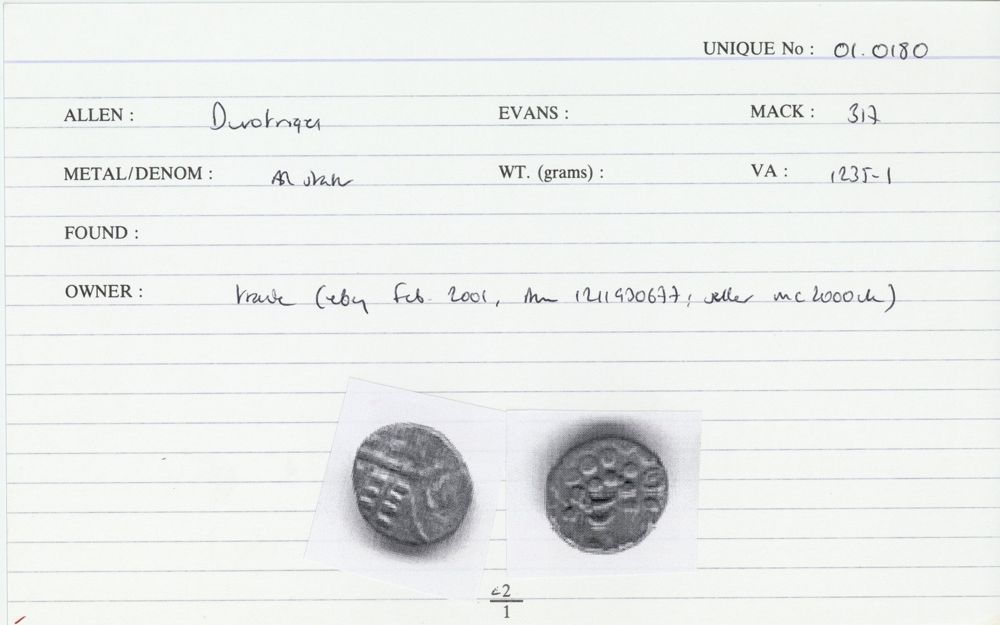 UNIQUE No : 01.0180
ALLEN : Durotriges EVANS : MACK : 317
METAL/DENOM : AR stater WT. (grams) : VA : 1235-1
FOUND :
OWNER : trade (ebay Feb. 2001, item 1211930677; seller mc2000uk)
c2
1